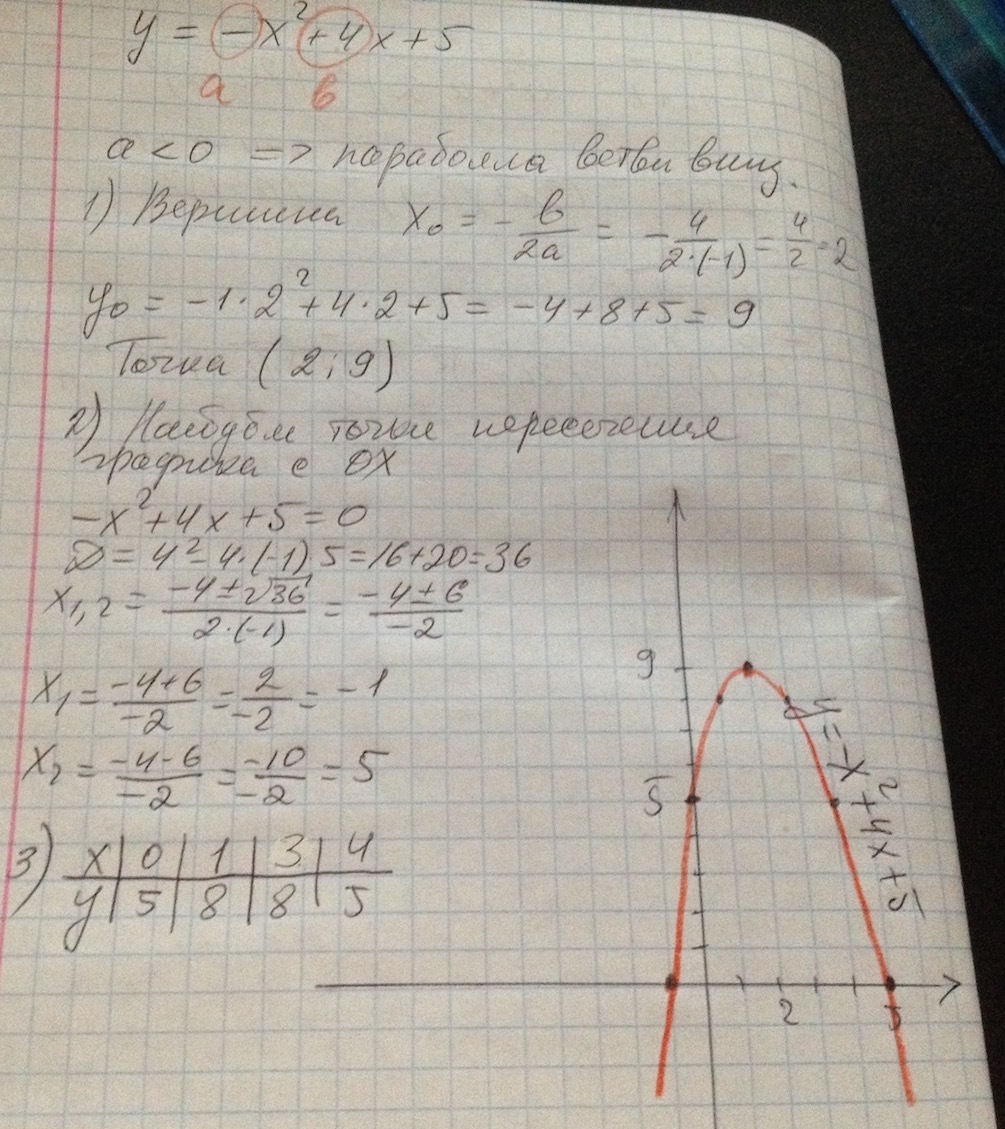 y = -x² + 4x + 5
a в
a < 0 => параболла ветви вниз.
1) Вершина x₀ = -в/2a = -4/2·(-1) = 4/2 = 2
y₀ = -1·2² + 4·2 + 5 = -4 + 8 + 5 = 9
Точка (2; 9)
2) Найдём точки пересечения
графика с OX
-x² + 4x + 5 = 0
D = 4² - 4·(-1) 5 = 16 + 20 = 36
x₁,₂ = -4 ± √36/2·(-1) = -4 ± 6/-2
x₁ = -4+6/-2 = 2/-2 = -1
x₂ = -4-6/-2 = -10/-2 = 5
3) x | 0 | 1 | 3 | 4
y | 5 | 8 | 8 | 5
9
5
2
5
y = -x² + 4x + 5